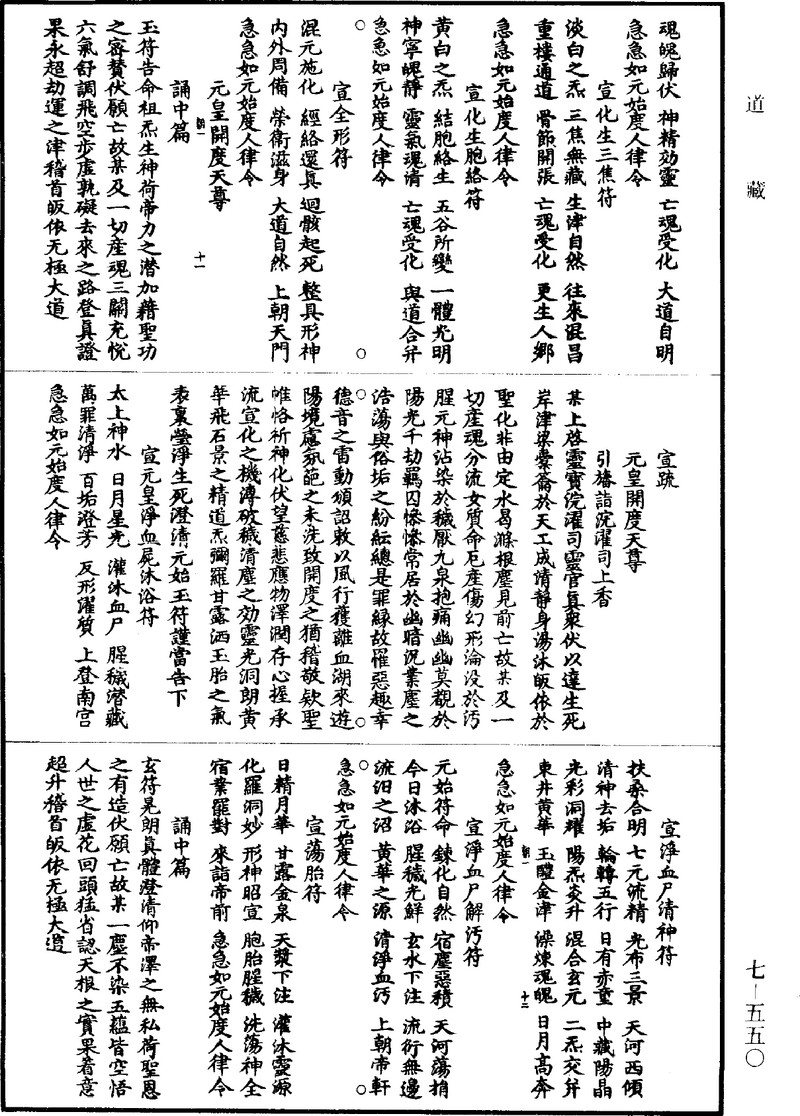 道藏
魂魄歸伏　神精効靈　亡魂受化　大道自明
急急如元始度人律令
宣化生三焦符
淡白之炁　三焦無藏　生津自然　往來混昌
重樓通道　骨節開張　亡魂受化　更生人鄉
急急如元始度人律令
宣化生胞絡符
黃白之炁　結胞絡生　五谷所變　一體光明
神寧魄靜　靈氣魂清　亡魂受化　與道合并
急急如元始度人律令
宣全形符
混元施化　經絡還真　迴骸起死　整具形神
內外周備　榮衛滋身　大道自然　上朝天門
急急如元始度人律令
元皇開度天尊
朝一　十一
誦中篇
玉符告命祖炁生神荷帝力之潛加藉聖功
之密贊伏願亡故某及一切產魂三關充悅
六氣舒調飛空步虛孰礙去來之路登真證
果永超劫運之津稽首皈依无極大道
宣疏
元皇開度天尊
引樁詣浣濯司上香
某上啓靈寶浣濯司靈官真衆伏以達生死
岸津梁橐籥於天工成清靜身湯沐皈依於
聖化非由定水曷滌根塵見前亡故某及一
切產魂分流女質命厄產傷幻形淪没於污
腥元神沾染於穢厭九泉抱痛幽幽莫覩於
陽光千劫羈囚慘慘常居於幽暗況業塵之
浩蕩與俗垢之紛紜總是罪緣故罹惡趣幸
德音之雷動頒詔敕以風行獲離血湖來遊
陽境慮氛葩之未洗致開度之猶稽敬欵聖
帷恪祈神化伏望慈悲應物澤潤存心握承
流宣化之機溥破穢清塵之効靈光洞朗黃
華飛石景之精道炁彌羅甘露洒玉胎之氣
表裏瑩淨生死澄清元始玉符謹當告下
宣元皇淨血屍沐浴符
太上神水　日月星光　灌沐血尸　腥穢潛藏
萬罪清淨　百垢澄芳　反形濯質　上登南宮
急急如元始度人律令
宣淨血尸清神符
扶桑合明　七元流精　光布三景　天河西傾
清神去垢　輪轉五行　日有赤童　中藏陽晶
光彩洞耀　陽炁炎升　混合玄元　二炁交并
東井黃華　玉醴金津　澡煉魂魄　日月高奔
朝一　十二
急急如元始度人律令
宣淨血尸解污符
元始符命　鍊化自然　宿塵惡積　天河蕩捎
今日沐浴　腥穢光鮮　玄水下注　流衍無邊
流汨之沼　黃華之源　清淨血污　上朝帝軒
急急如元始度人律令
宣蕩胎符
日精月華　甘露金泉　天漿下注　灌沐靈源
化羅洞妙　形神昭宣　胞胎腥穢　洗蕩神全
宿業罷對　來詣帝前　急急如元始度人律令
誦中篇
玄符晃朗真體澄清仰帝澤之無私荷聖恩
之有造伏願亡故某一塵不染五蘊皆空悟
人世之虛花回頭猛省認天根之實果着意
超升稽首皈依无極大道
七—五五〇